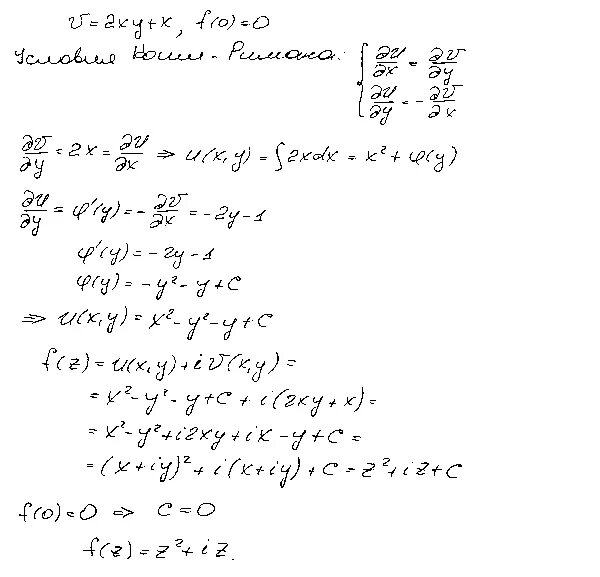 v = 2xy + x, f(0) = 0
Условия Коши - Римана: { ∂u/∂x = ∂v/∂y
∂u/∂y = - ∂v/∂x
∂v/∂y = 2x = ∂u/∂x ⇒ u(x,y) = ∫2xdx = x² + φ(y)
∂u/∂y = φ'(y) = - ∂v/∂x = -2y-1
φ'(y) = -2y-1
φ(y) = -y²-y+C
⇒ u(x,y) = x²-y²-y+C
f(z) = u(x,y)+iv(x,y) =
= x²-y²-y+C+i(2xy+x) =
= x²-y²+i2xy+ix-y+C =
= (x+iy)²+i(x+iy)+C = z²+iz+C
f(0)=0 ⇒ C=0
f(z)=z²+iz.